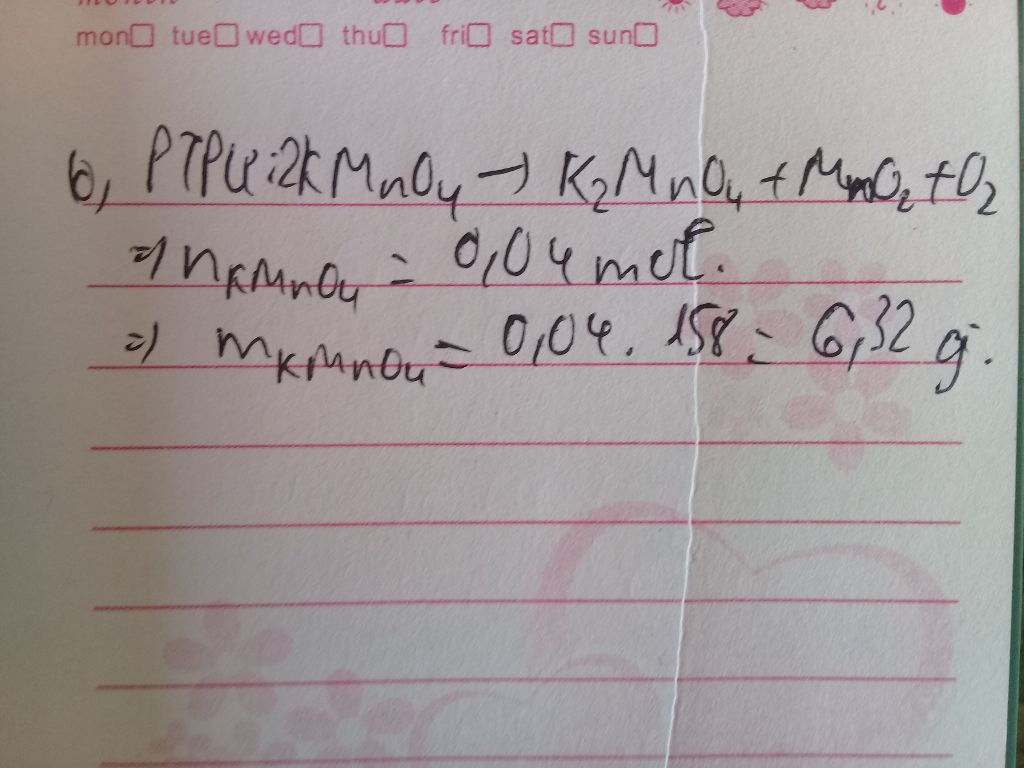 mon□ tue□ wed□ thu□ fri□ sat□ sun□
b, PTPƯ: 2KMnO₄ → K₂MnO₄ + MnO₂ + O₂
=) n KMnO₄ = 0,04 mol.
=) m KMnO₄ = 0,04 . 158 = 6,32 g.